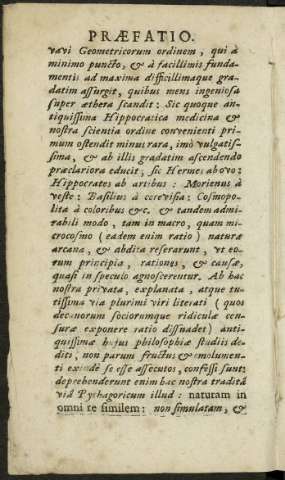 PRÆFATIO.
vavi Geometricorum ordinem, qui à
minimo puncto, & à facillimis funda-
mentis ad maxima difficillimaque gra-
datim assurgit, quibus mens ingeniosa
super æthera scandit: Sic quoque an-
tiquissima Hippocratica medicina &
nostra scientia ordine convenienti pri-
mum ostendit minus rara, imò vulgatis-
sima, & ab illis gradatim ascendendo
præclariora educit, sic Hermes ab ovo:
Hippocrates ab artibus: Morienus à
veste: Basilius à cerevisia: Cosmopo-
lita à coloribus &c. & tandem admi-
rabili modo, tam in macro, quam mi-
crocosmo (eadem enim ratio) naturæ
arcana, & abdita reserarunt, ut eo-
rum principia, rationes, & causæ,
quasi in speculo agnoscerentur. Ab hac
nostra privata, explanata, atque tu-
tissima via plurimi viri literati (quos
decanorum sociorumque ridiculæ cen-
suræ exponere ratio dissuadet) anti-
quissimæ hujus philosophiæ studiis de-
diti, non parum fructus & emolumen-
ti exinde se esse assecutos, confessi sunt:
deprehenderunt enim hac nostra tradita
viâ Pythagoricum illud: naturam in
omni re similem: non simulatam, &